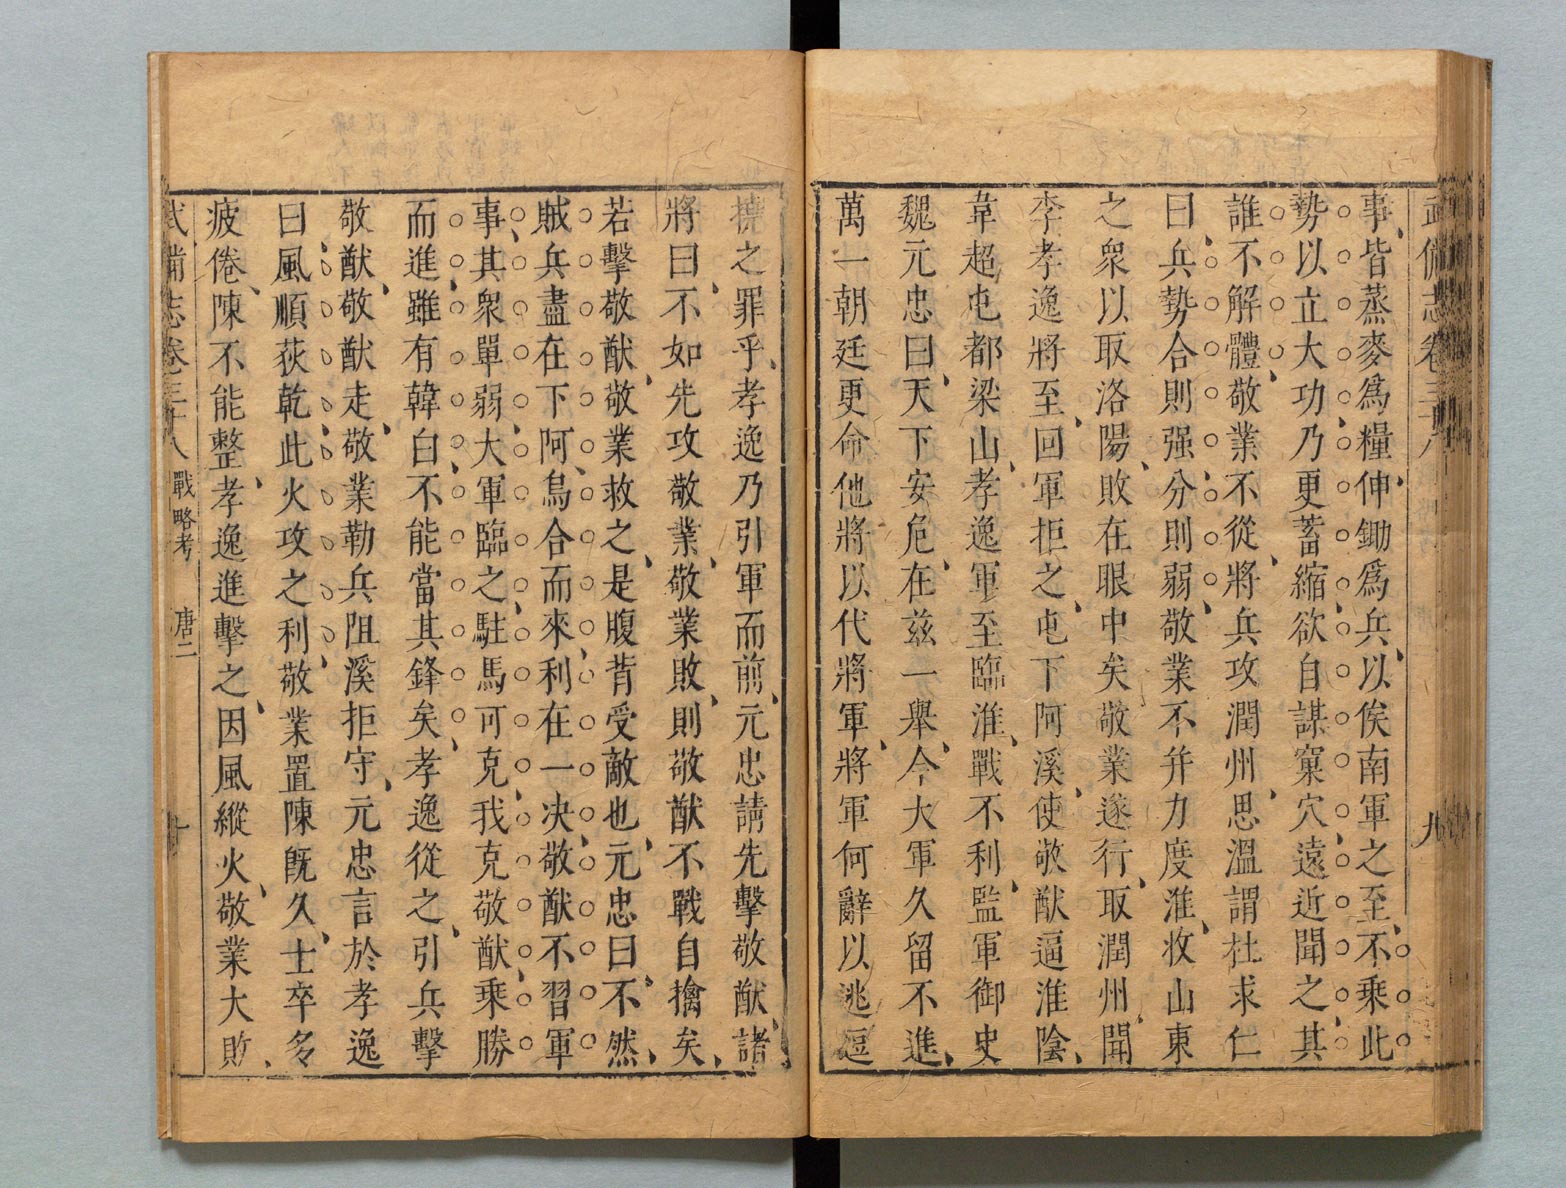 武備志卷三十八
九
事皆蒸麥爲糧伸鋤爲兵以俟南軍之至不乘此
勢以立大功乃更蓄縮欲自謀窠穴遠近聞之其
誰不解體敬業不從將兵攻潤州思溫謂杜求仁
曰兵勢合則强分則弱敬業不并力度淮收山東
之衆以取洛陽敗在眼中矣敬業遂行取潤州聞
李孝逸將至回軍拒之屯下阿溪使敬猷逼淮陰
韋超屯都梁山孝逸軍至臨淮戰不利監軍御史
魏元忠曰天下安危在兹一舉今大軍久留不進
萬一朝廷更命他將以代將軍將軍何辭以逃逗
撓之罪乎孝逸乃引軍而前元忠請先擊敬猷諸
將曰不如先攻敬業敬業敗則敬猷不戰自擒矣
若擊敬猷敬業救之是腹背受敵也元忠曰不然
賊兵盡在下阿烏合而來利在一决敬猷不習軍
事其衆單弱大軍臨之駐馬可克我克敬猷乘勝
而進雖有韓白不能當其鋒矣孝逸從之引兵擊
敬猷敬猷走敬業勒兵阻溪拒守元忠言於孝逸
曰風順荻乾此火攻之利敬業置陳旣久士卒多
疲倦陳不能整孝逸進擊之因風縱火敬業大敗
武備志卷三十八 戰略考 唐二
十